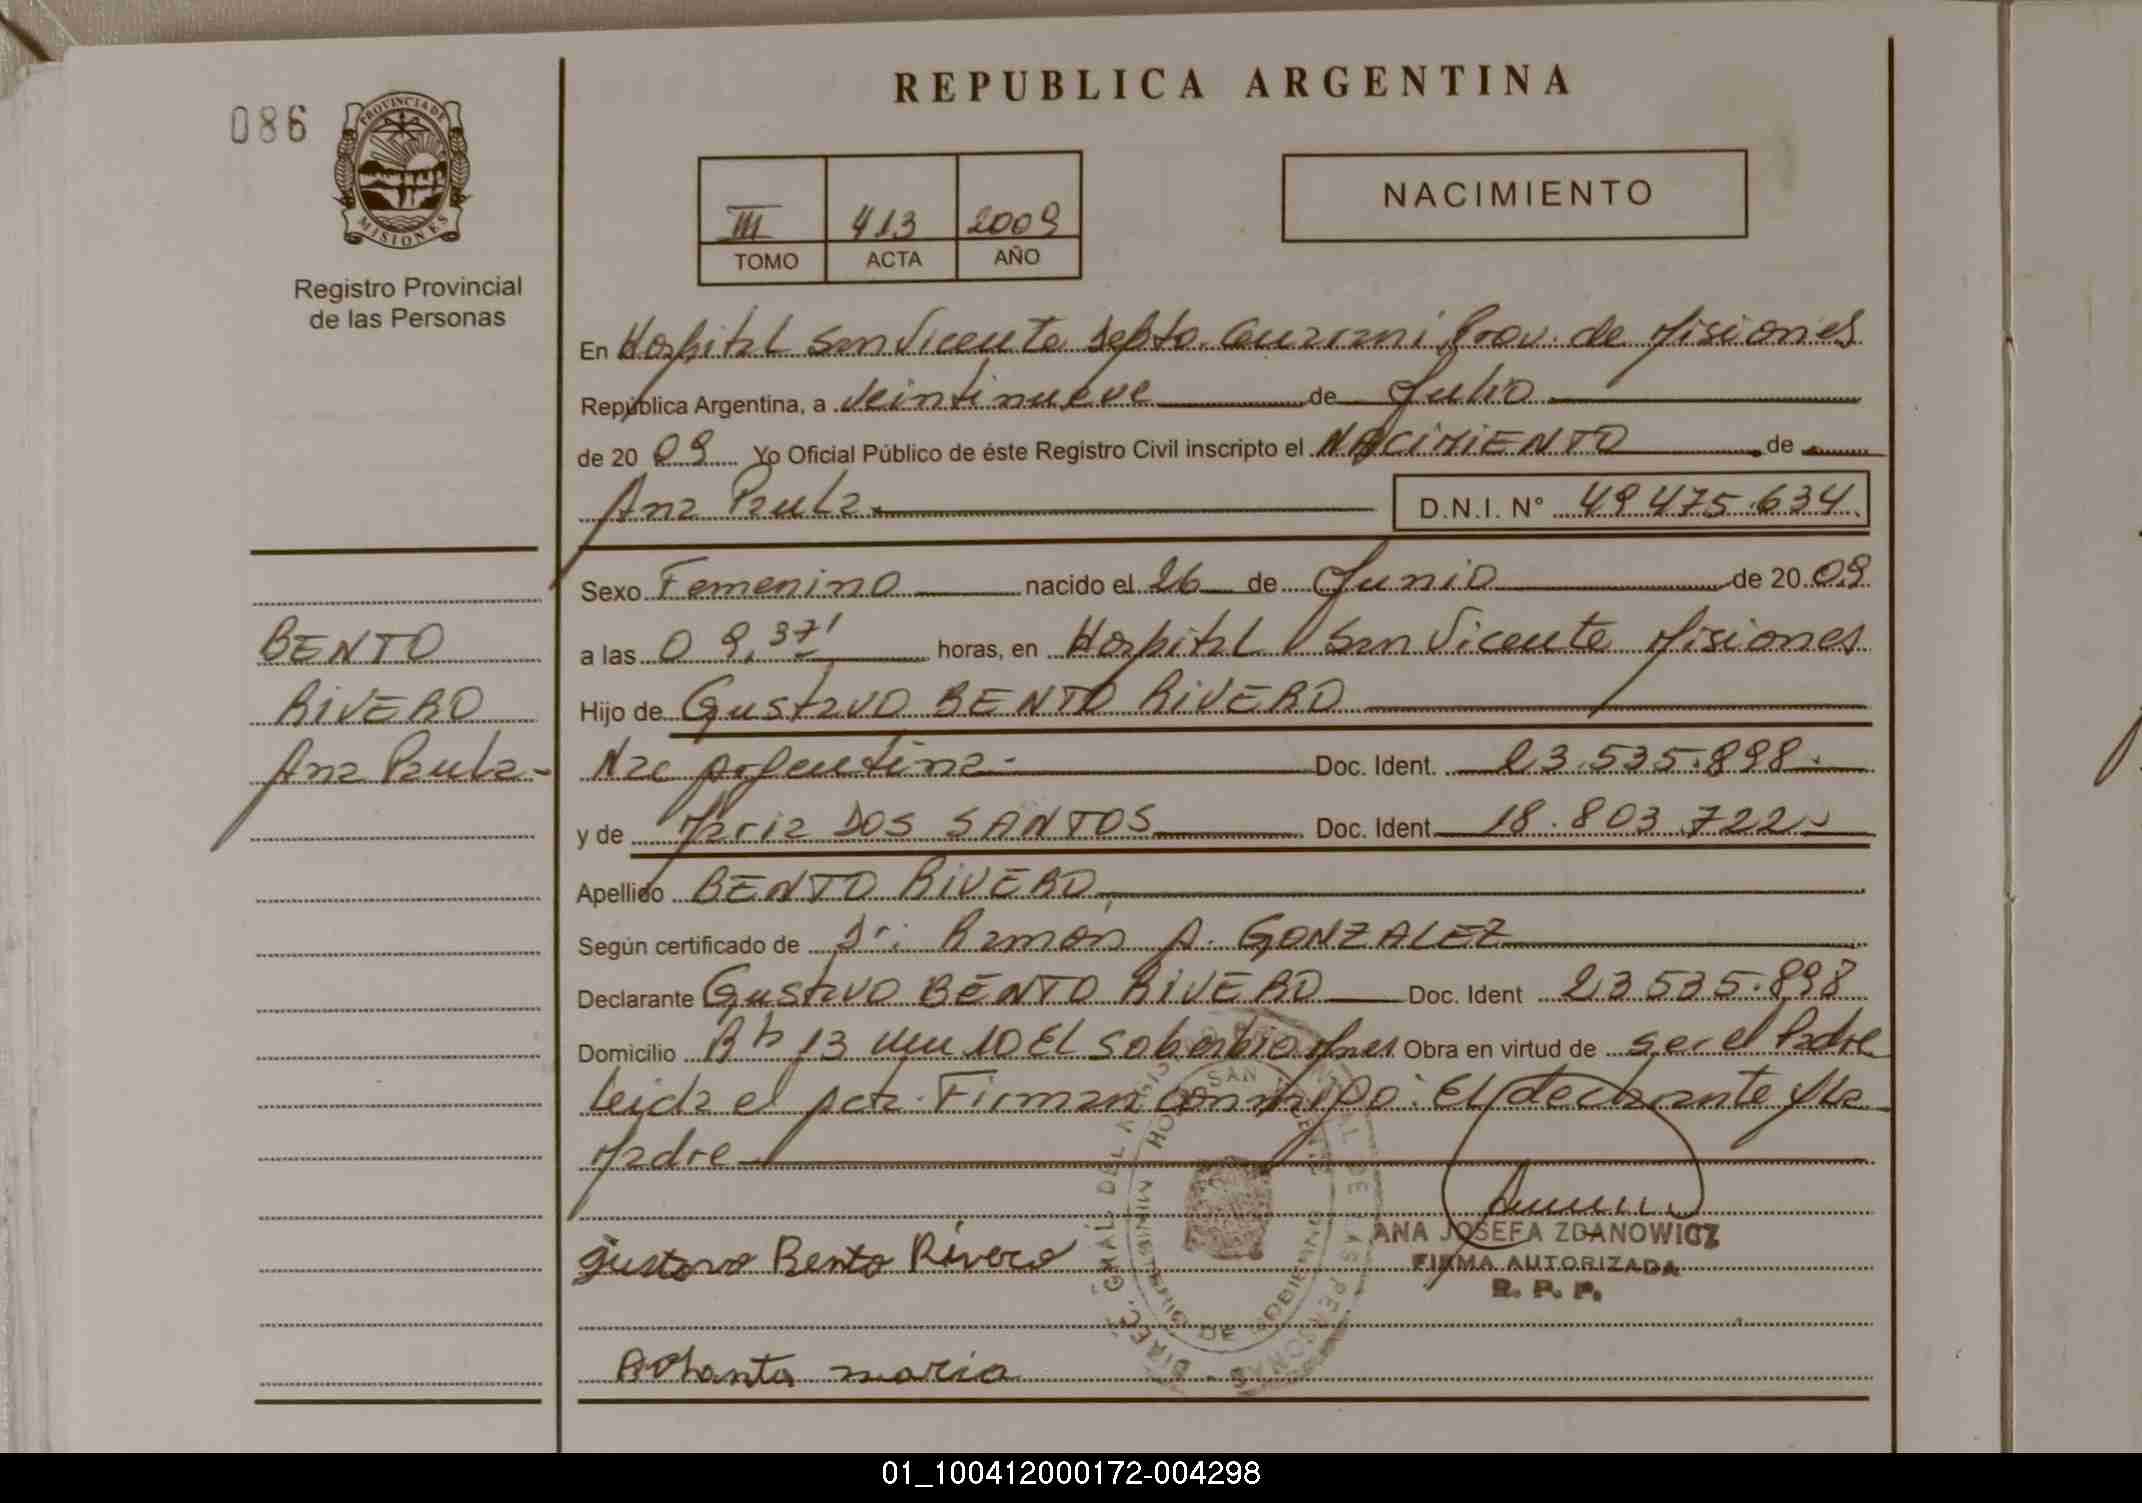 REPUBLICA ARGENTINA
086
PROVINCIA DE
MISIONES
Registro Provincial
de las Personas
NACIMIENTO
III 413 2009
TOMO ACTA AÑO
En Hospital San Vicente Depto. Guarani Prov. de Misiones
República Argentina, a veintinueve de Julio
de 20 09 Yo Oficial Público de éste Registro Civil inscripto el NACIMIENTO de
Ana Paula D.N.I. N° 49 475.634
Sexo Femenino nacido el 26 de Junio de 20 09
a las 09,37' horas, en Hospital San Vicente Misiones
BENTO
RIVERO
Ana Paula-
Hijo de Gustavo BENTO RIVERO
Nac Argentina- Doc. Ident. 23.535.898.
y de Maria DOS SANTOS Doc. Ident 18.803.722
Apellido BENTO RIVERO
Según certificado de Dr: Ramón A. GONZALEZ
Declarante Gustavo BENTO RIVERO Doc. Ident 23 535.898
Domicilio 13 10 El Soberbio Mnes Obra en virtud de ser el Padre
Leida el Acta. Firman conmigo: El declarante y la
Madre
ANA JOSEFA ZDANOWICZ
FIRMA AUTORIZADA
R. P. P.
Gustavo Bento Rivero
maria
DIREC. GRAL. DEL REGIST. PROVINCIAL DE LAS PERSONAS
MINISTERIO DE GOBIERNO
HOSP. SAN VICENTE
01_100412000172-004298